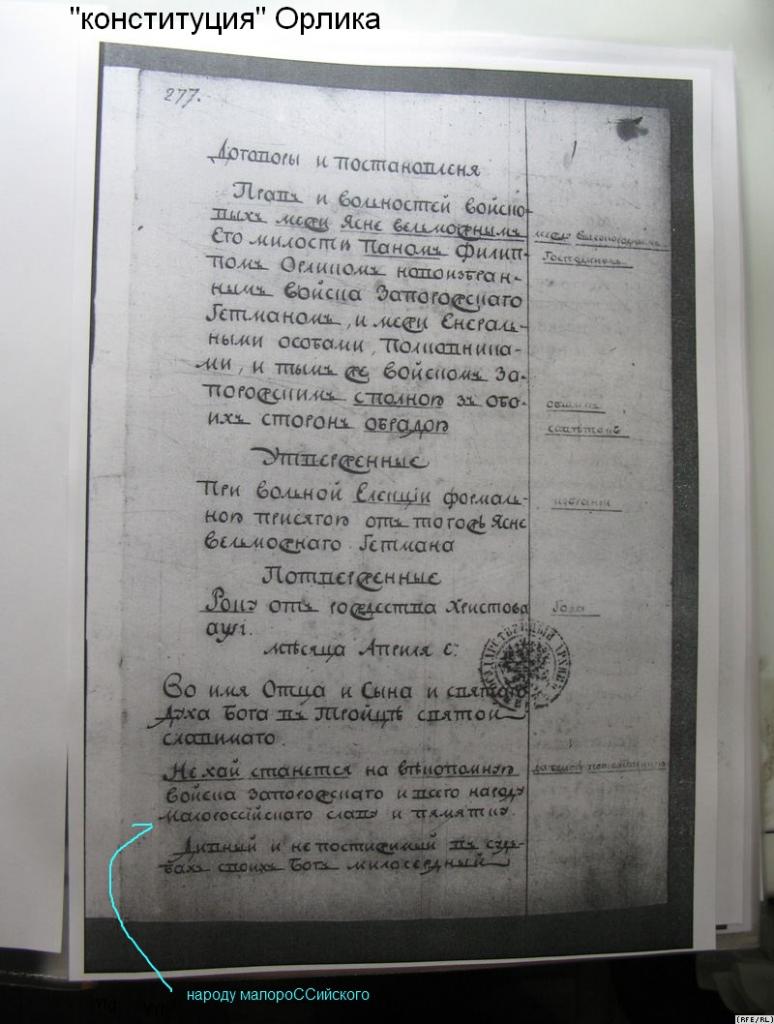 "конституция" Орлика
277.
Договоры и постановленя
Правъ и волностей войско-
выхъ межи Ясне вельможнымъ
его милости Паномъ Филип-
помъ Орликомъ новоизбран-
нымъ войска Запорожскаго
Гетманомъ, и межи Енераль-
ными особами, Полковника-
ми, и тымъ же войскомъ За-
порожскимъ с полною зъ обо-
ихъ сторонъ обрадою
Утверженные
При волной Елекціи формаль-
ною присягою отъ тогожъ Ясне
Велможнаго Гетмана
Потверженные
Року отъ рождества Христова
аѱі.
мѣсяца Априля е:
Во имя Отца и Сына и святаго
Духа Бога въ Тройцѣ святой
славимаго.
Нехай станется на вѣкопомную
войска Запорожскаго и всего народу
малороссійскаго славу и памятку.
Дивный и непостижимый въ судь-
бахъ своихъ Богъ милосердный
Господиномъ
избраніи
Года
народу малороССийского
(RFE/RL)